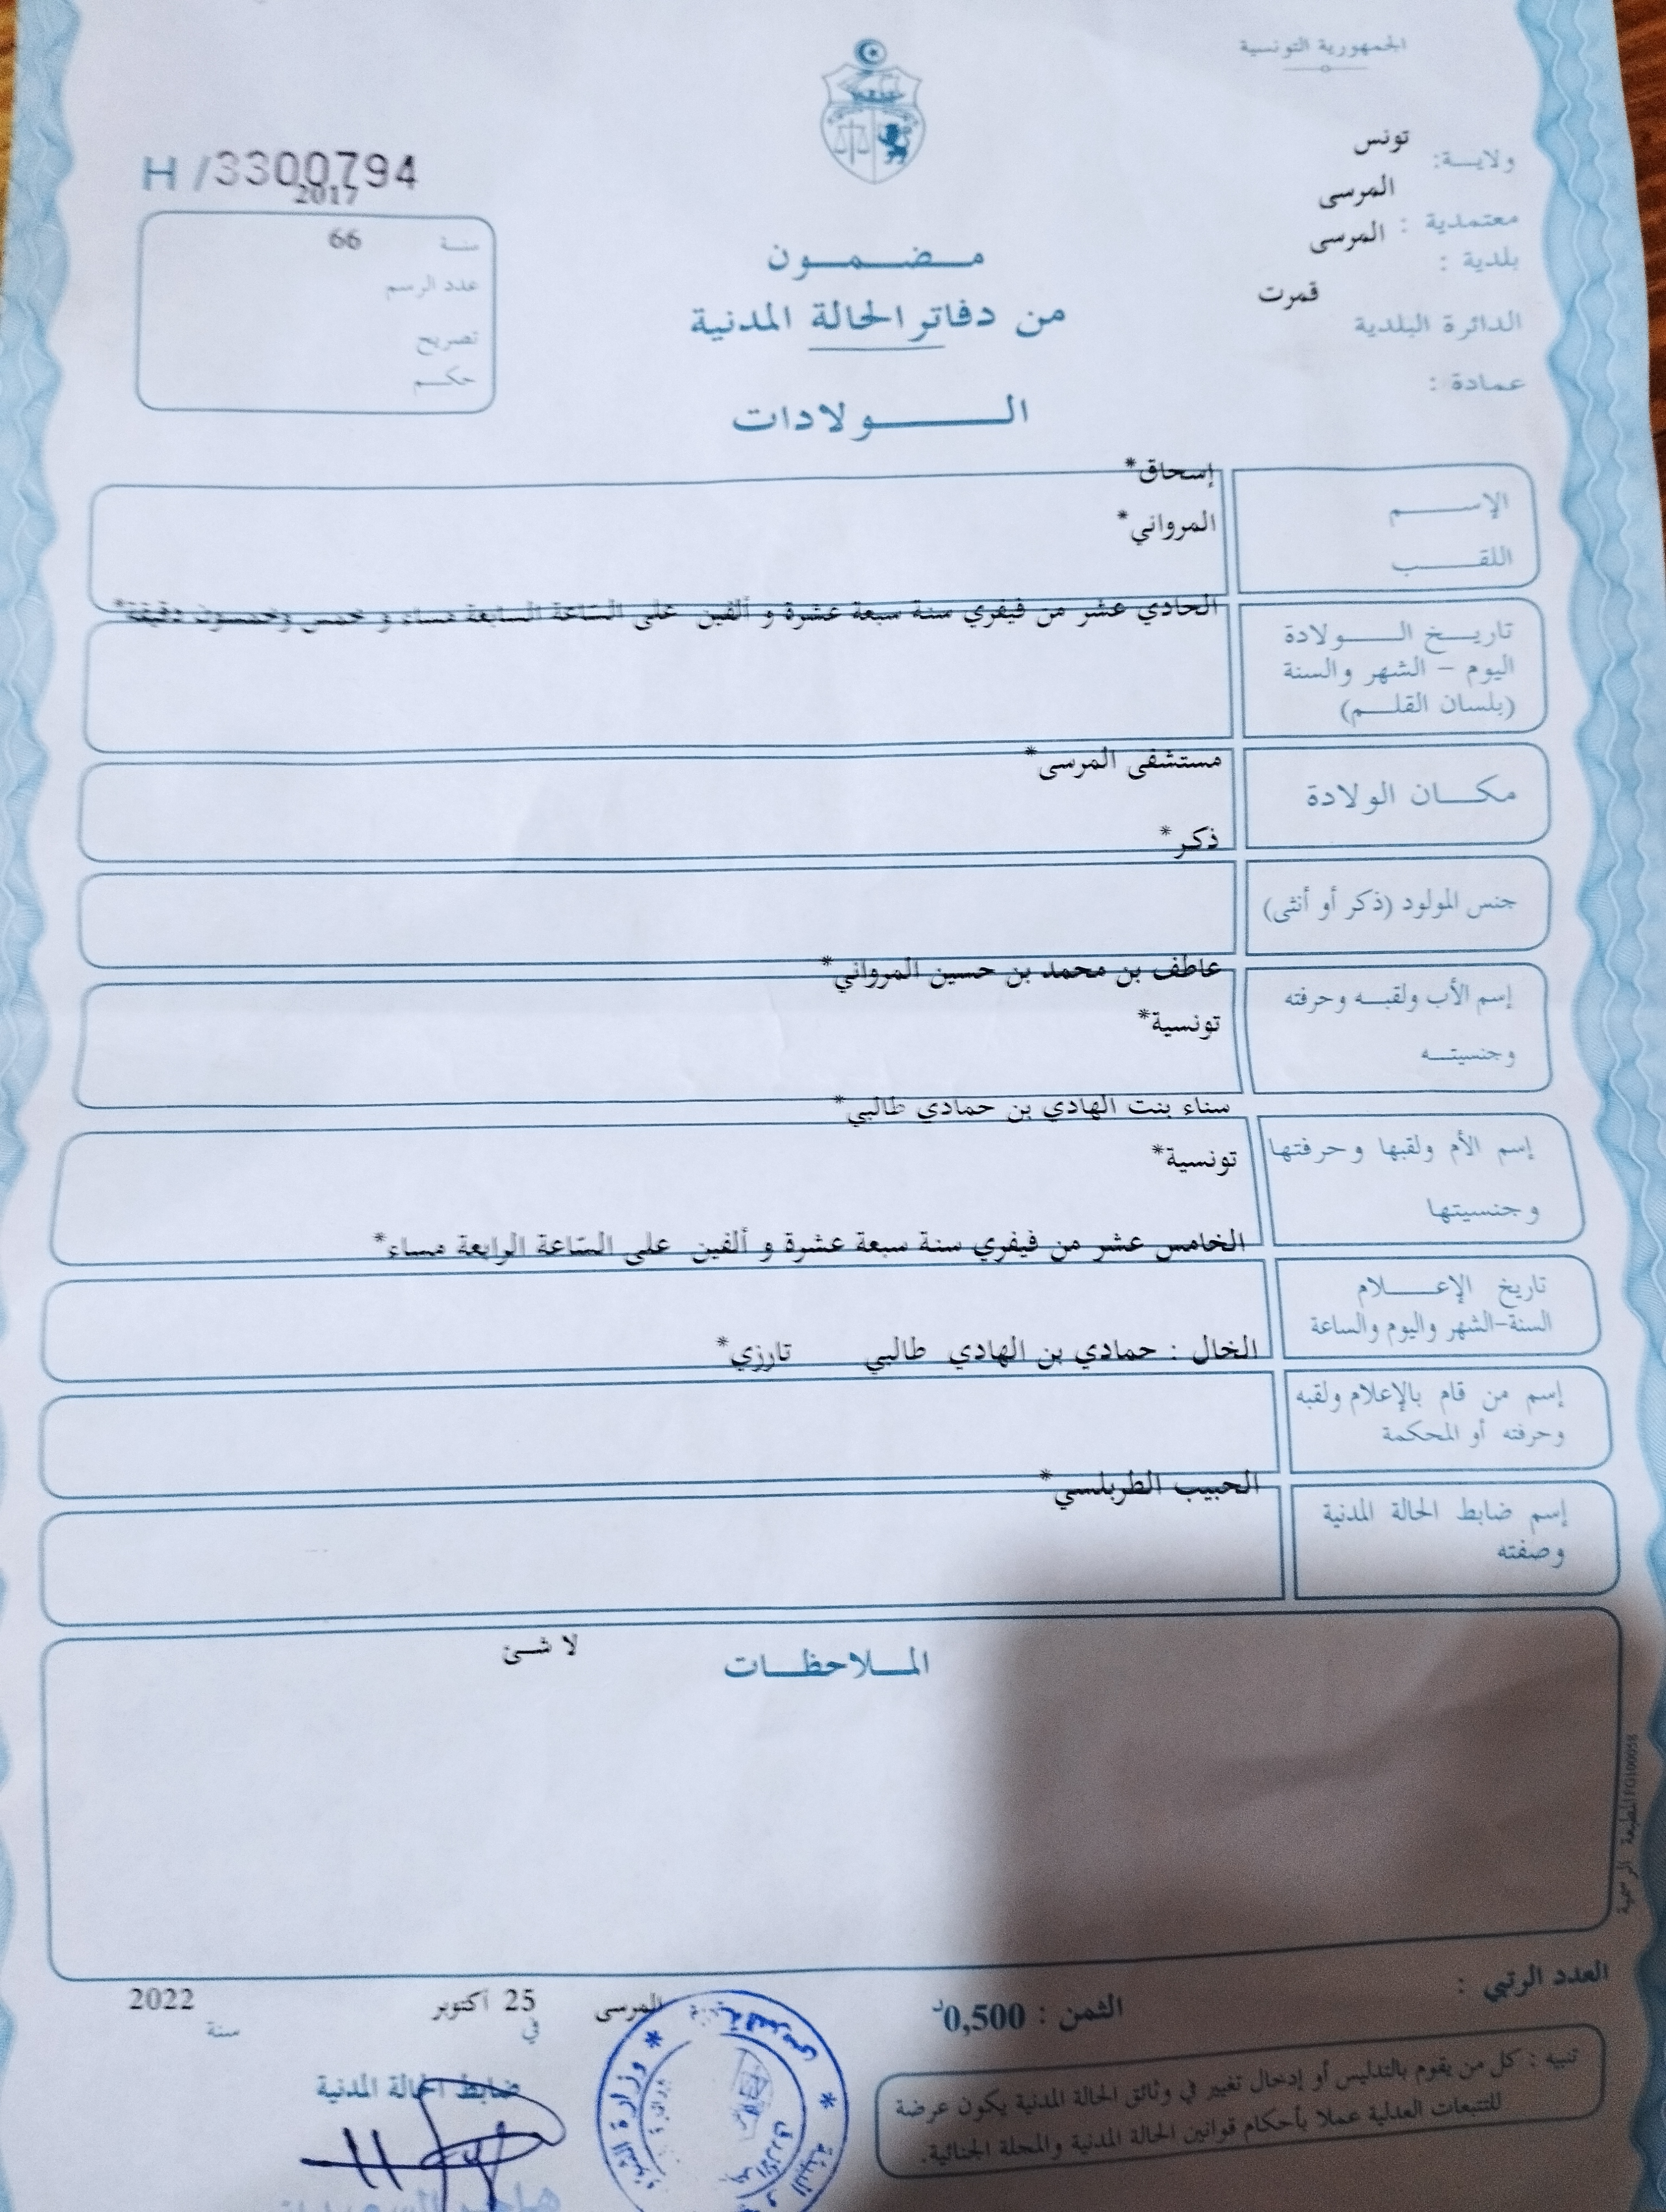 الجمهورية التونسية
ولايـــة: تونس
معتمدية : المرسى
بلدية : المرسى
الدائرة البلدية قمرت
عمادة :
H /3300794
2017
سنـة 66
عدد الرسم
تصريح
حكـــم
مـــضـــمـــون
من دفاتر الحالة المدنية
الـــــولادات
الإســـــم إسحاق*
اللقـــــب المرواني*
تاريـــخ الـــــولادة الحادي عشر من فيفري سنة سبعة عشرة و ألفين على الساعة السابعة مساء و خمس وخمسون دقيقة*
اليوم – الشهر والسنة
(بلسان القلـــم)
مكـــان الولادة مستشفى المرسى*
جنس المولود (ذكر أو أنثى) ذكر*
إسم الأب ولقبـــه وحرفته عاطف بن محمد بن حسين المرواني*
وجنسيتـــه تونسية*
إسم الأم ولقبها وحرفتها سناء بنت الهادي بن حمادي طالبي*
وجنسيتها تونسية*
تاريخ الإعـــــلام الخامس عشر من فيفري سنة سبعة عشرة و ألفين على الساعة الرابعة مساء*
السنة-الشهر واليوم والساعة
إسم من قام بالإعلام ولقبه الخال : حمادي بن الهادي طالبي تارزي*
وحرفته أو المحكمة
إسم ضابط الحالة المدنية الحبيب الطربلسي*
وصفته
المـــلاحظـــات لا شئ
المطبعة الرسمية
العدد الرتبي :
الثمن : 0,500د
المرسى في 25 أكتوبر سنة 2022
ضابط الحالة المدنية
تنبيه : كل من يقوم بالتدليس أو إدخال تغيير في وثائق الحالة المدنية يكون عرضة
للتتبعات العدلية عملا بأحكام قوانين الحالة المدنية والمجلة الجنائية.